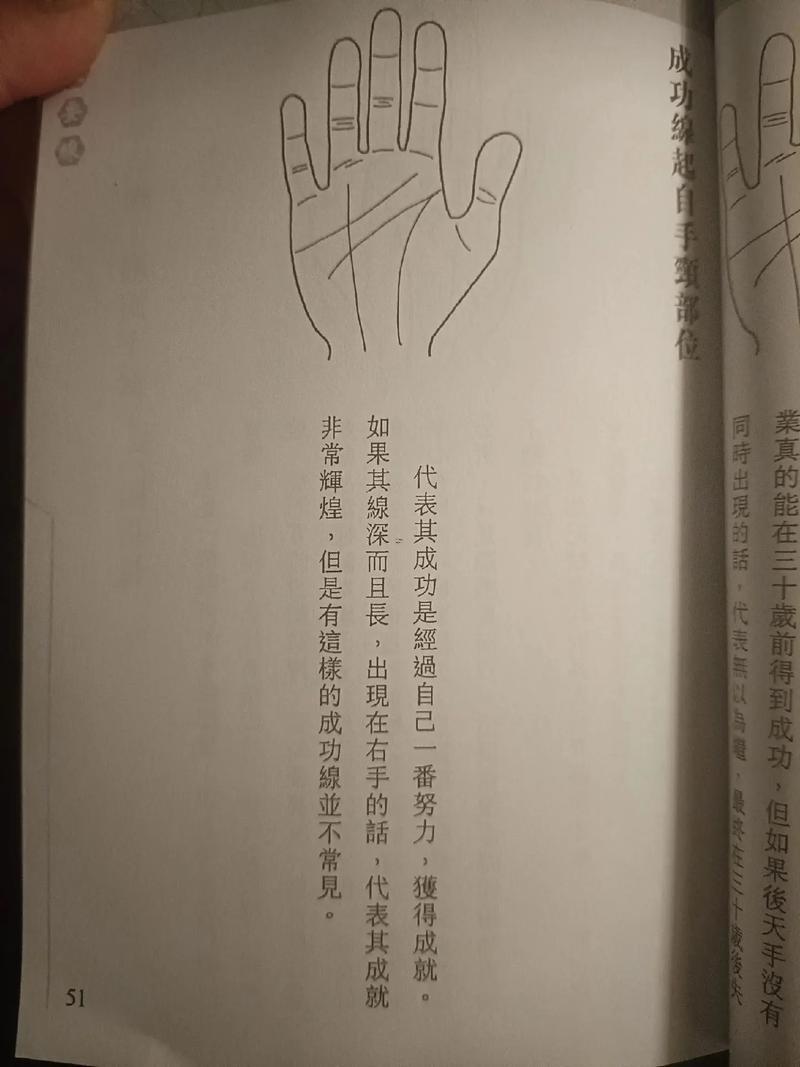 業真的能在三十歲前得到成功，但如果後天手沒有
同時出現的話，代表無以為繼，最終在三十歲後失
成功線起自手頸部位
代表其成功是經過自己一番努力，獲得成就。
如果其線深而且長，出現在右手的話，代表其成就
非常輝煌，但是有這樣的成功線並不常見。
51